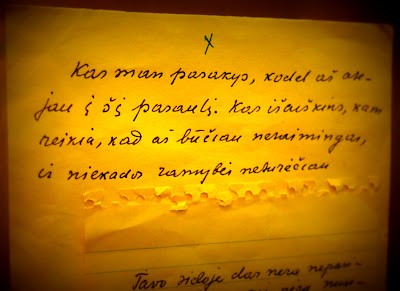 x
Kas man pasakys, kodel aš atė-
jau į šį pasaulį. Kas išaiškins, kam
reikia, kad aš būčiau nelaimingas,
ir niekados ramybės neturėčiau
Tavo širdoje dar nėra
nėra